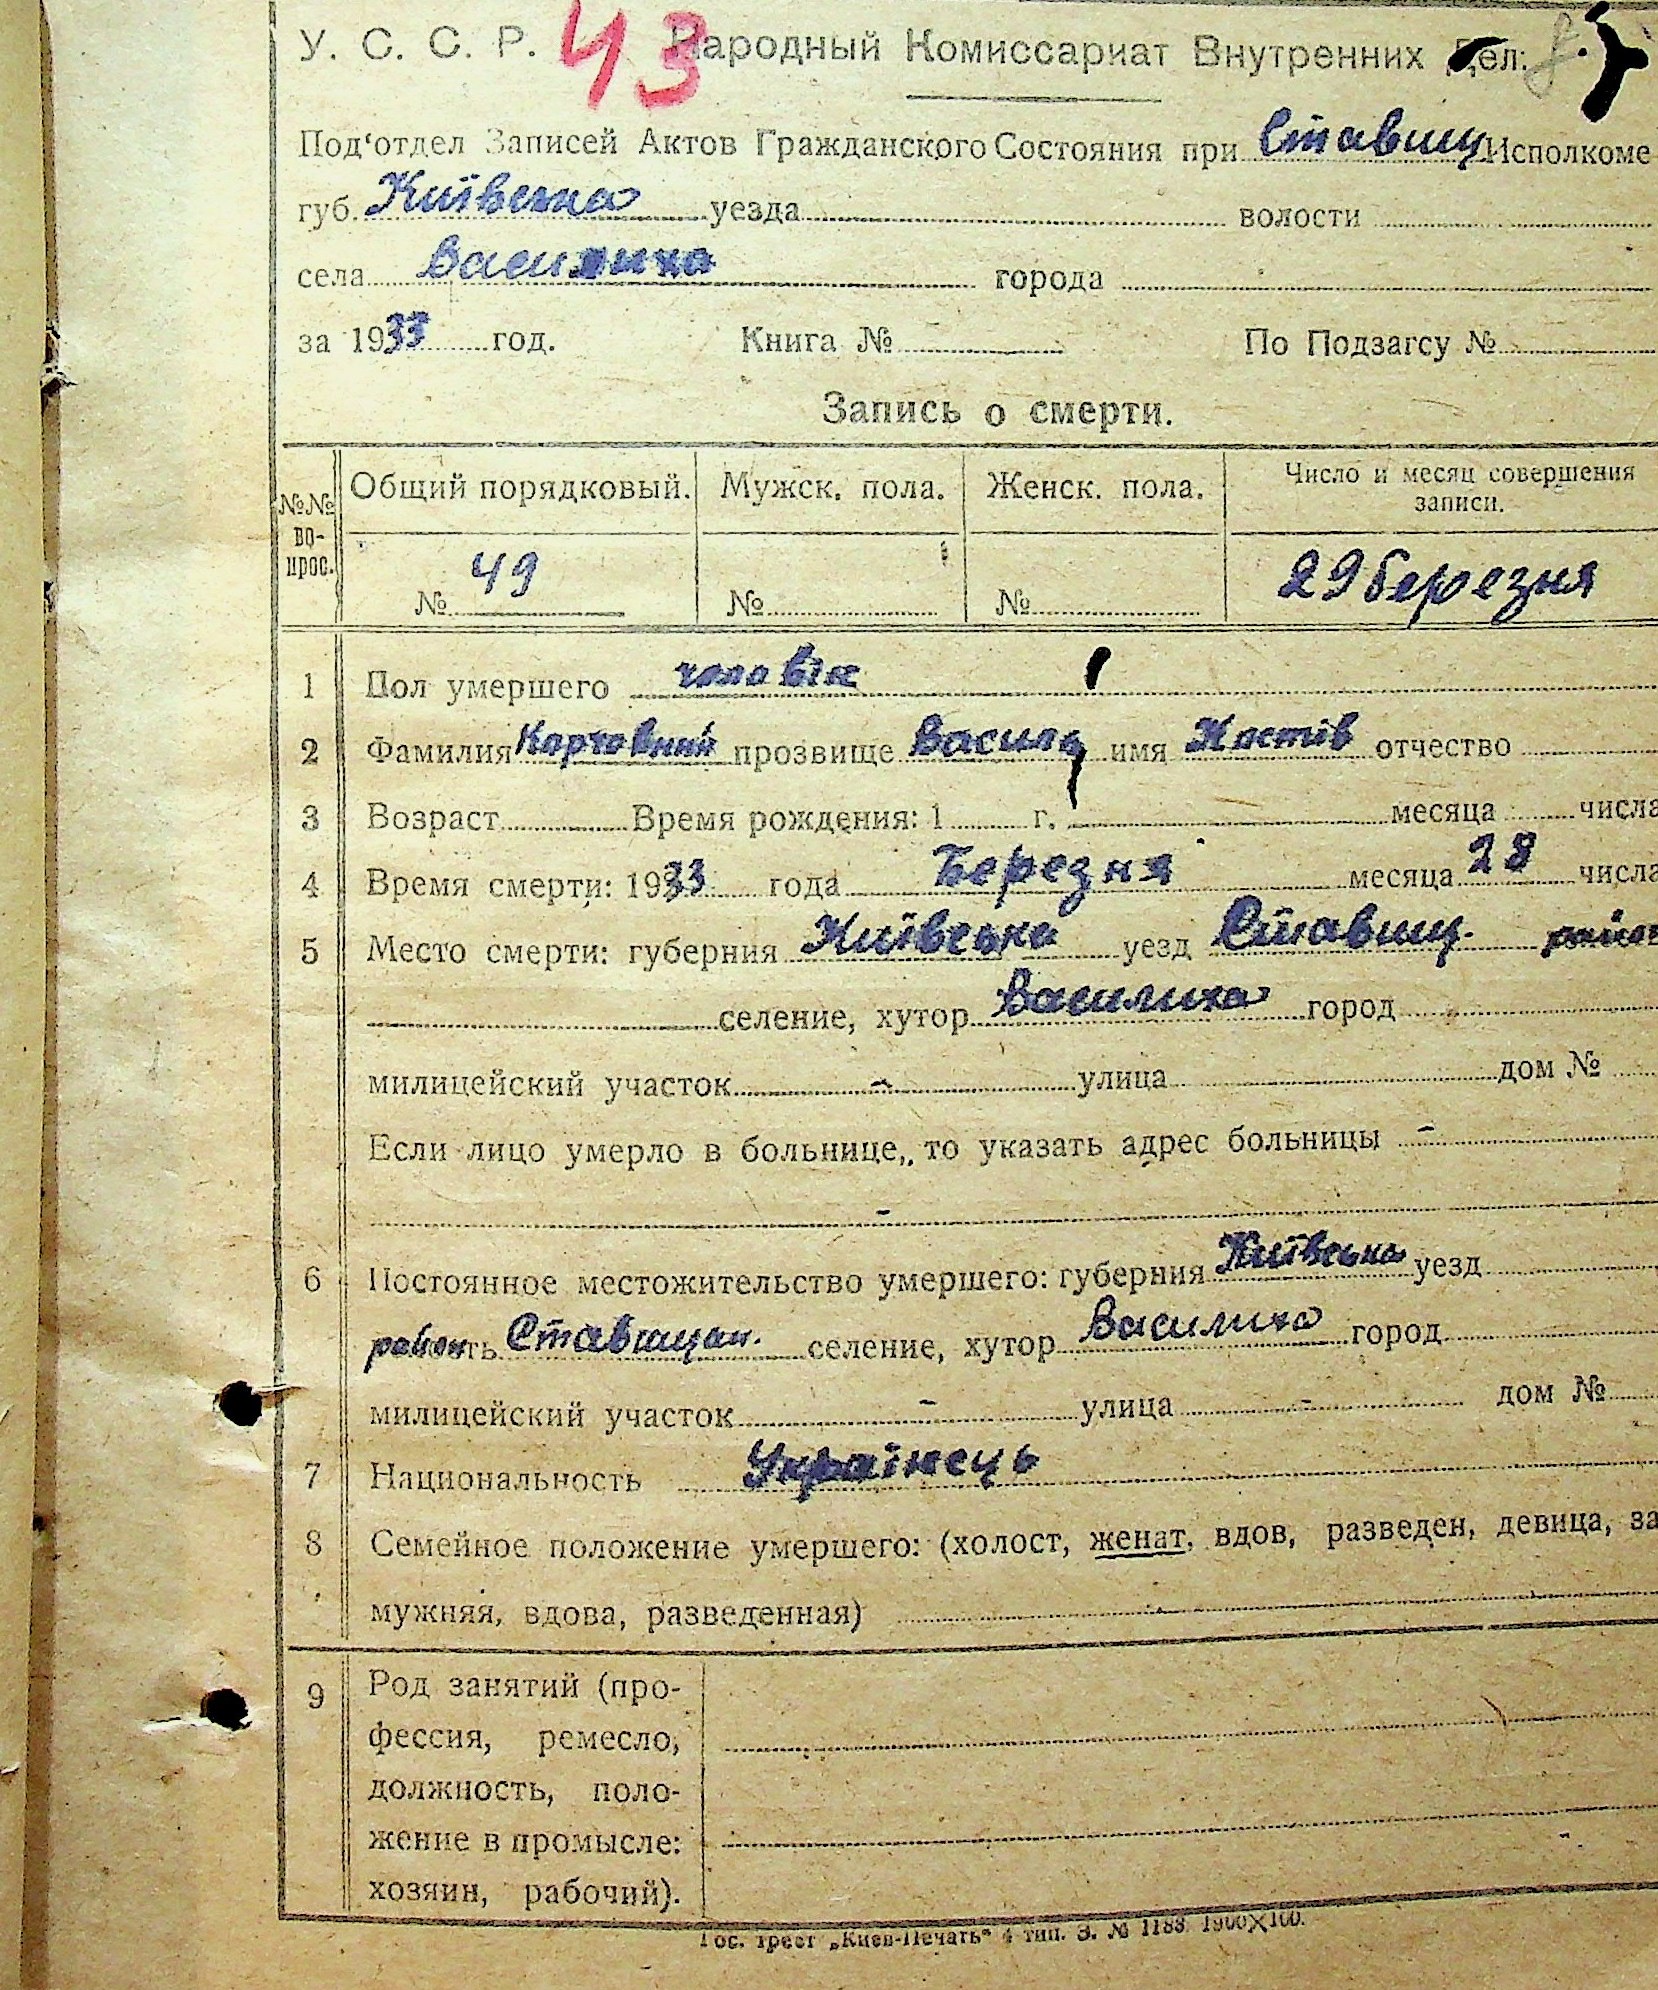 У. С. С. Р. 43 Народный Комиссариат Внутренних Дел:
Под'отдел Записей Актов Гражданского Состояния при Ставищ Исполкоме
губ. Київська уезда волости
села Василиха города
за 1933 год. Книга № По Подзагсу №
Запись о смерти.
№№ во- прос. Общий порядковый. Мужск. пола. Женск. пола. Число и месяц совершения записи.
№ 49 № № 29 березня
1 Пол умершего чоловік
2 Фамилия прозвище Василь имя Костів отчество
3 Возраст Время рождения: 1 г. месяца числа
4 Время смерти: 1933 года Березня месяца 28 числа
5 Место смерти: губерния Київська уезд Ставищ. район
селение, хутор Василиха город
милицейский участок - улица дом №
Если лицо умерло в больнице, то указать адрес больницы -
-
6 Постоянное местожительство умершего: губерния Київська уезд
район ть Ставищан. селение, хутор Василиха город
милицейский участок - улица - дом №
7 Национальность Українець
8 Семейное положение умершего: (холост, женат, вдов, разведен, девица, за
мужняя, вдова, разведенная)
9 Род занятий (про-
фессия, ремесло,
должность, поло-
жение в промысле:
хозяин, рабочий).
Гос. трест „Киев-Печать“ 4 тип. З. № 1188. 1900X100.